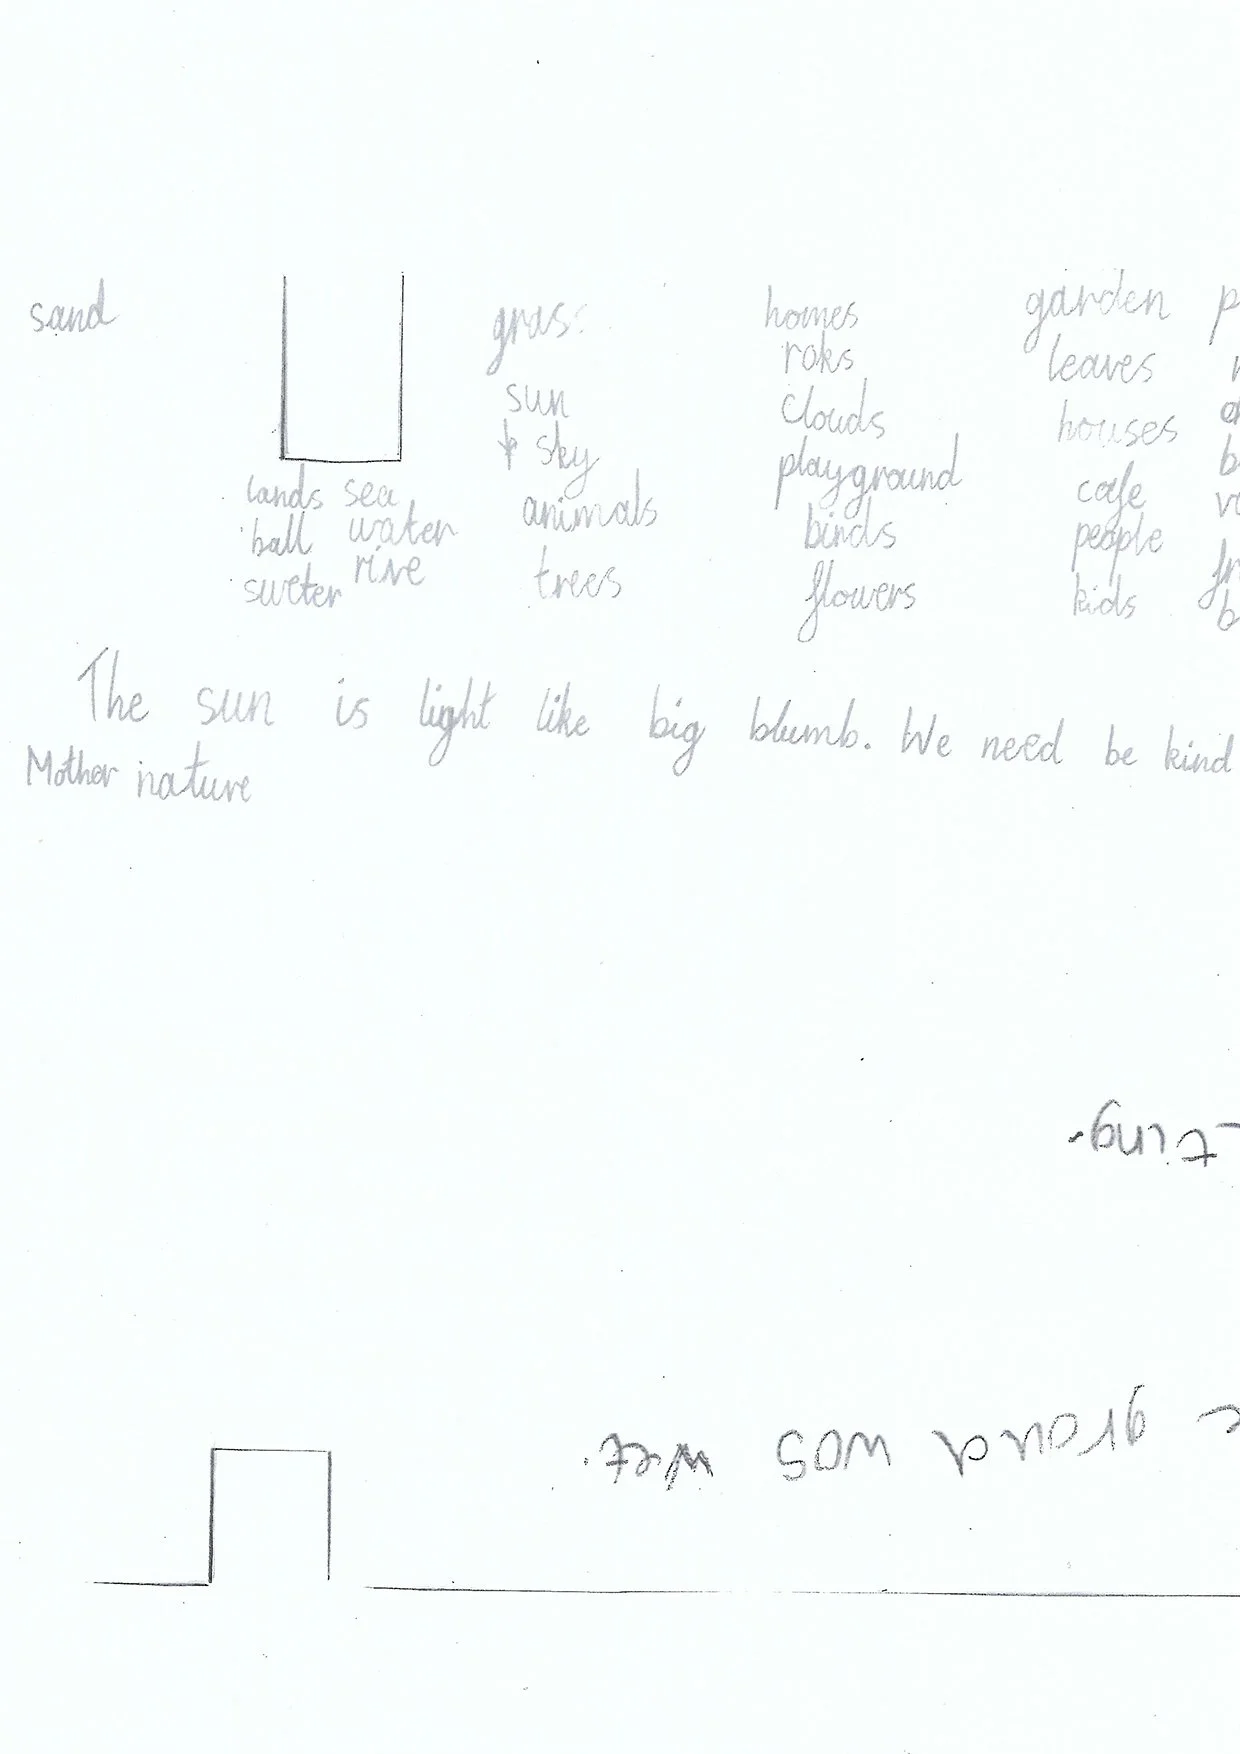 sand
grass
homes
garden
roks
leaves
sun
clouds
houses
sky
playground
lands sea
cafe
animals
ball water
birds
people
rive
trees
sweter
flowers
kids
The sun is light like big blumb. We need be kind
Mother nature
ground was wet.
-ting.